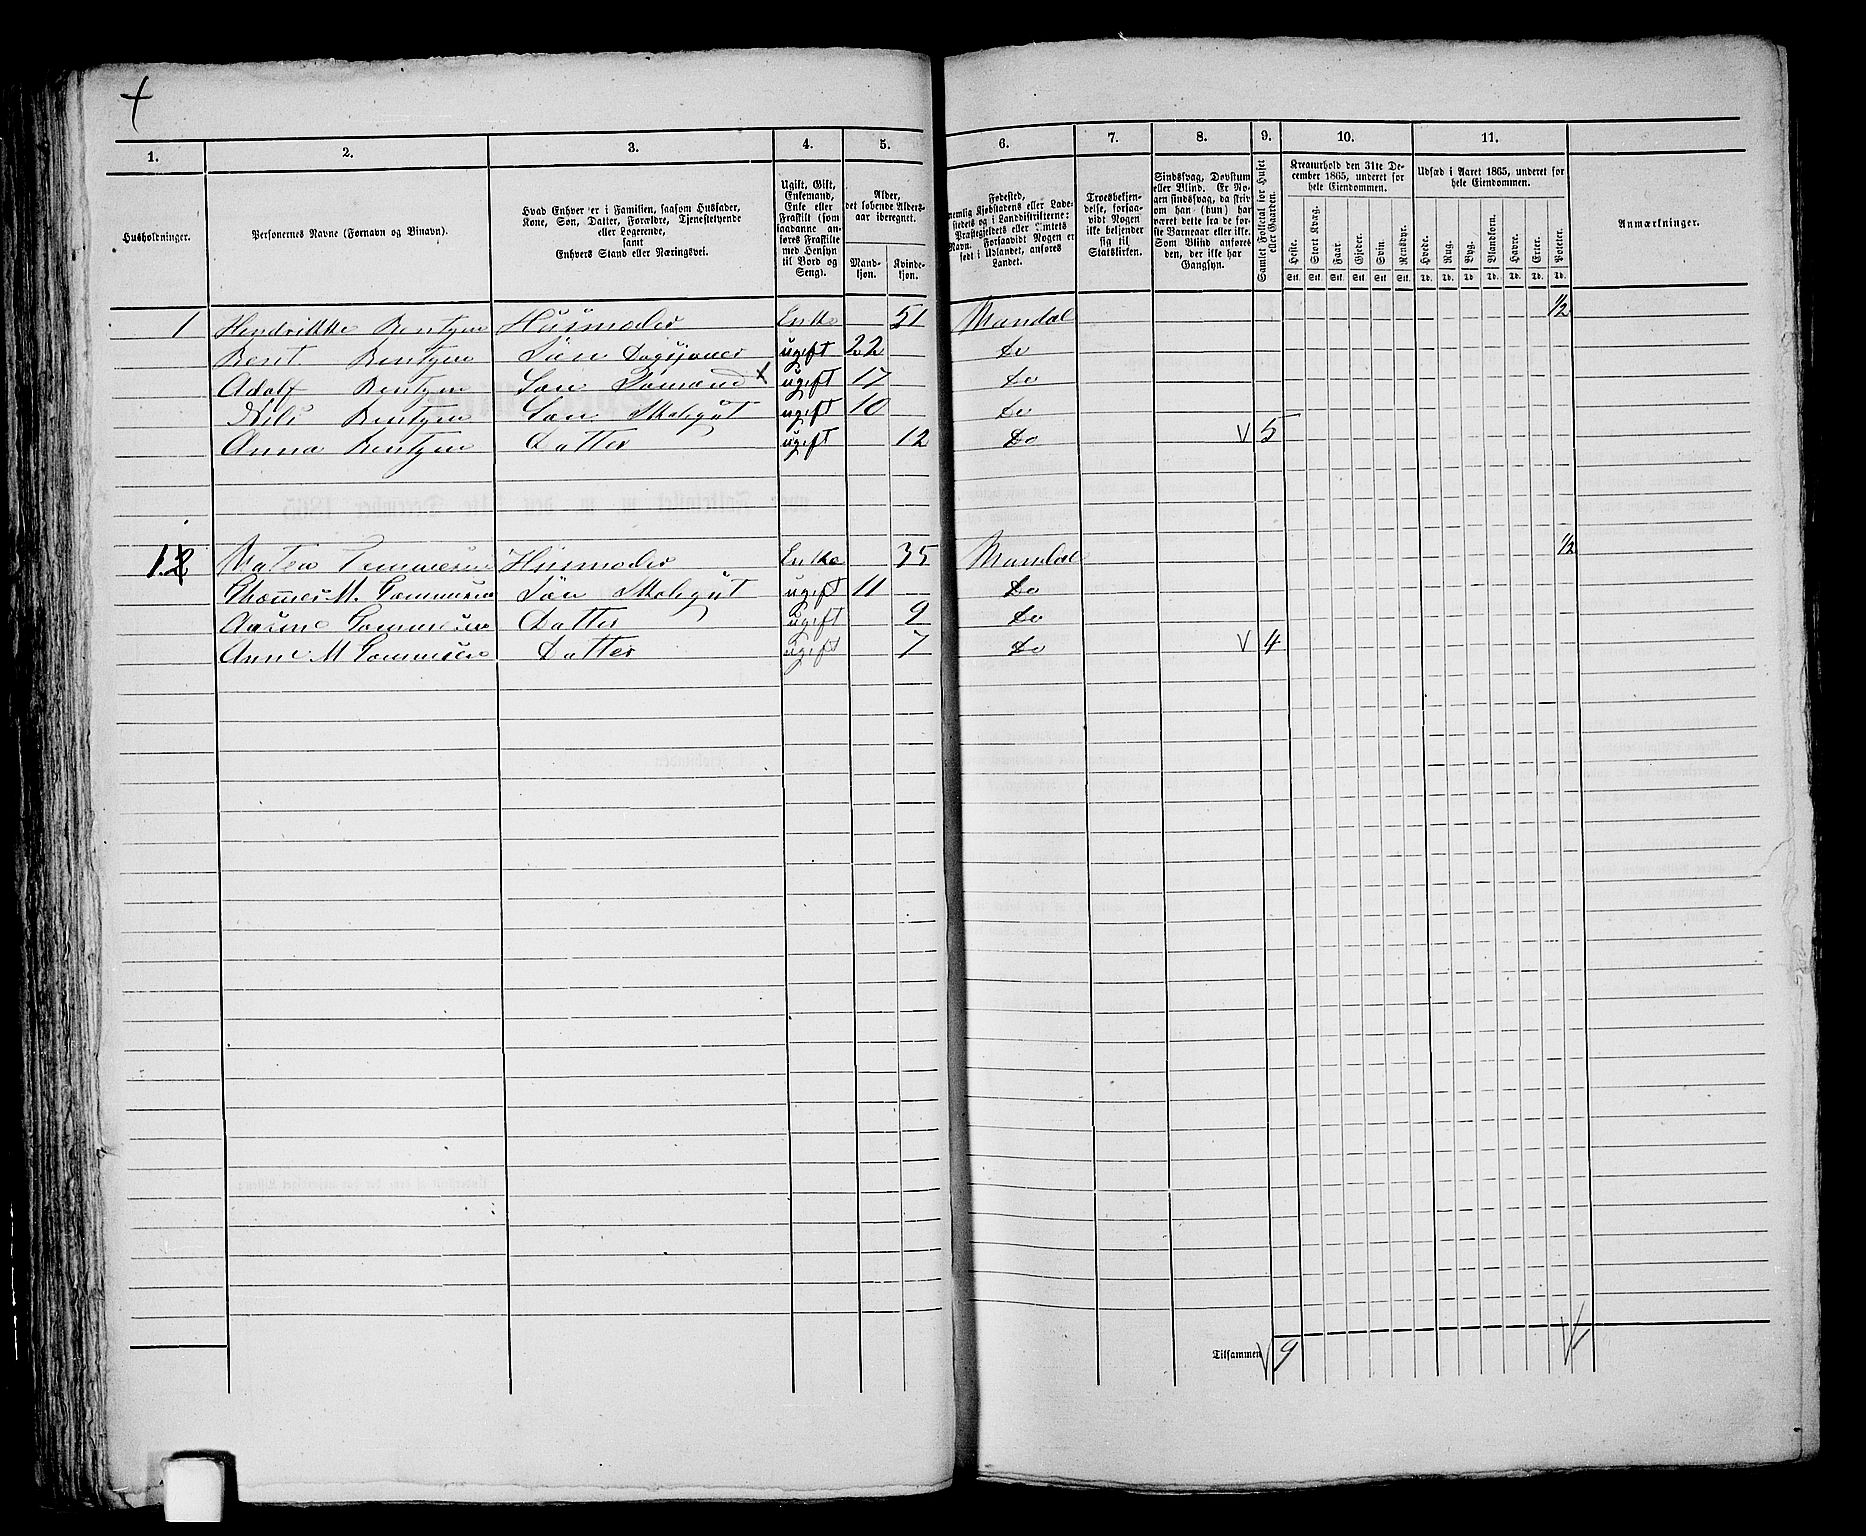 1. 2. 3. 4. 5. 6. 7. 8. 9. 10. 11.
Husholdninger.
Personernes Navne (Fornavn og Binavn).
Hvad Enhver er i Familien, saasom Husfader,
Kone, Søn, Datter, Forældre, Tjenestetyende
eller Logerende,
samt
Enhvers Stand eller Næringsvei.
Ugift, Gift,
Enkemand,
Enke eller
Fraskilt (som
saadanne an-
føres Fraskilte
med Hensyn
til Bord og
Seng).
Alder,
det løbende Alders-
aar iberegnet.
Mand-
kjøn.
Kvinde-
kjøn.
Fødested,
nemlig Kjøbstadens eller Lade-
stedets og i Landdistrikterne:
Præstegjeldets eller
Navn. Forsaavidt Nogen er
født i Udlandet, anføres
Landet.
Troesbekjen-
delse, forsaa-
vidt Nogen
ikke bekjender
sig til
Statskirken.
Sindssvag, Døvstum
eller Blind. Er No-
gen sindssvag, da skri-
ves om han (hun) har
været dette fra de før-
ste Barneaar eller ikke.
Som Blind anføres
den, der ikke har
Gangsyn.
Samlet Folketal for Huset
eller Gaarden.
Kreaturhold den 31te De-
cember 1865, underet for
hele Eiendommen.
Heste. Stort Kvæg. Faar. Gjeder. Svin. Rensdyr.
Stk. Stk. Stk. Stk. Stk. Stk.
Udsæd i Aaret 1865, underet for
hele Eiendommen.
Hvede. Rug. Byg. Blandkorn. Havre. Erter. Poteter.
Td. Td. Td. Td. Td. Td. Td.
Anmærkninger.
1 Hendrikke Bentzen Husmoder Enke 51 Mandal 1/2
Bent Bentzen Søn ugift 22 Do
Adolf Bentzen Søn Sømand x ugift 17 Do
Nils Bentzen Søn Skolegut ugift 10 Do
Anna Bentzen Datter ugift 12 Do V 5
2 Husmoder Enke 35 Mandal 1/2
M. Tommesen Søn Skolegut ugift 11 Do
Tommesen Datter ugift 9 Do
Anne M Tommesen Datter ugift 7 Do V 4
Tilsammen V 9 V 1